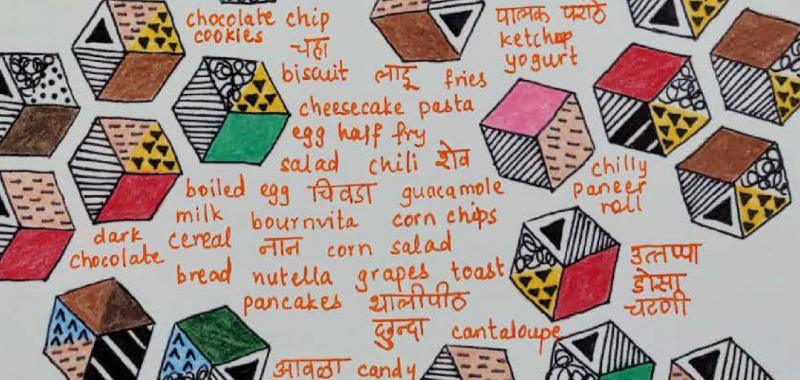 chocolate chip
cookies
चहा
biscuit लाडू fries
cheesecake pasta
egg half fry
salad chili शेव
boiled egg चिवडा guacamole
milk bournvita corn chips
dark
chocolate cereal नान corn salad
bread nutella grapes toast
pancakes थालीपीठ
छुन्दा cantaloupe
आवळा candy
पालक पराठे
ketchup
yogurt
chilly
paneer
roll
उत्तप्पा
डोसा
चटणी